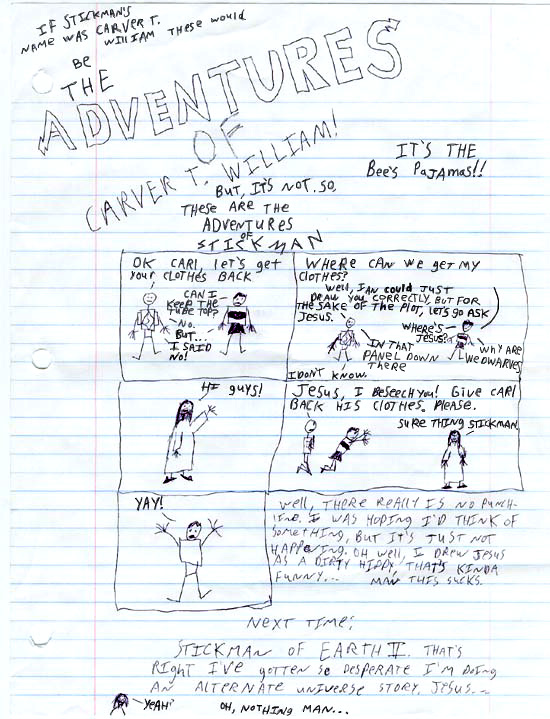 IF STICKMAN'S
NAME WAS CARVER T.
WILLIAM THESE WOULD
BE
THE
ADVENTURES
OF
CARVER T. WILLIAM!
IT'S THE
Bee's PaJamas!!
BUT, IT'S NOT. SO,
THESE ARE THE
ADVENTURES
OF
STICKMAN
OK CARL LET'S get
your CLOTHES BACK
CAN I
KEEP THE
TUBE TOP?
NO.
BUT...
I SAID
NO!
WHERE CAN WE GET MY
CLOTHES?
Well, IAN could JUST
DRAW YOU CORRECTLY, BUT FOR
THE SAKE OF THE PLOT, LET'S GO ASK
JESUS.
WHERE'S
JESUS?
IN THAT
PANEL DOWN
THERE
WHY ARE
WE DWARVES
I DON'T KNOW.
HI guys!
JESUS, I BESEECH YOU! GIVE CARL
BACK HIS CLOTHES. PLEASE.
SURE THING STICKMAN
YAY!
Well, THERE REALLY IS NO PUNCH-
LINE. I WAS HOPING I'D THINK OF
SOMETHING, BUT IT'S JUST NOT
HAPPENING. OH well, I DREW JESUS
AS A DIRTY HIPPY, THAT'S KINDA
FUNNY... MAN THIS SUCKS.
NEXT TIME:
STICKMAN OF EARTH II. THAT'S
RIGHT I'VE GOTTEN SO DESPERATE I'M DOING
AN ALTERNATE UNIVERSE STORY. JESUS...
YEAH?
OH, NOTHING MAN...